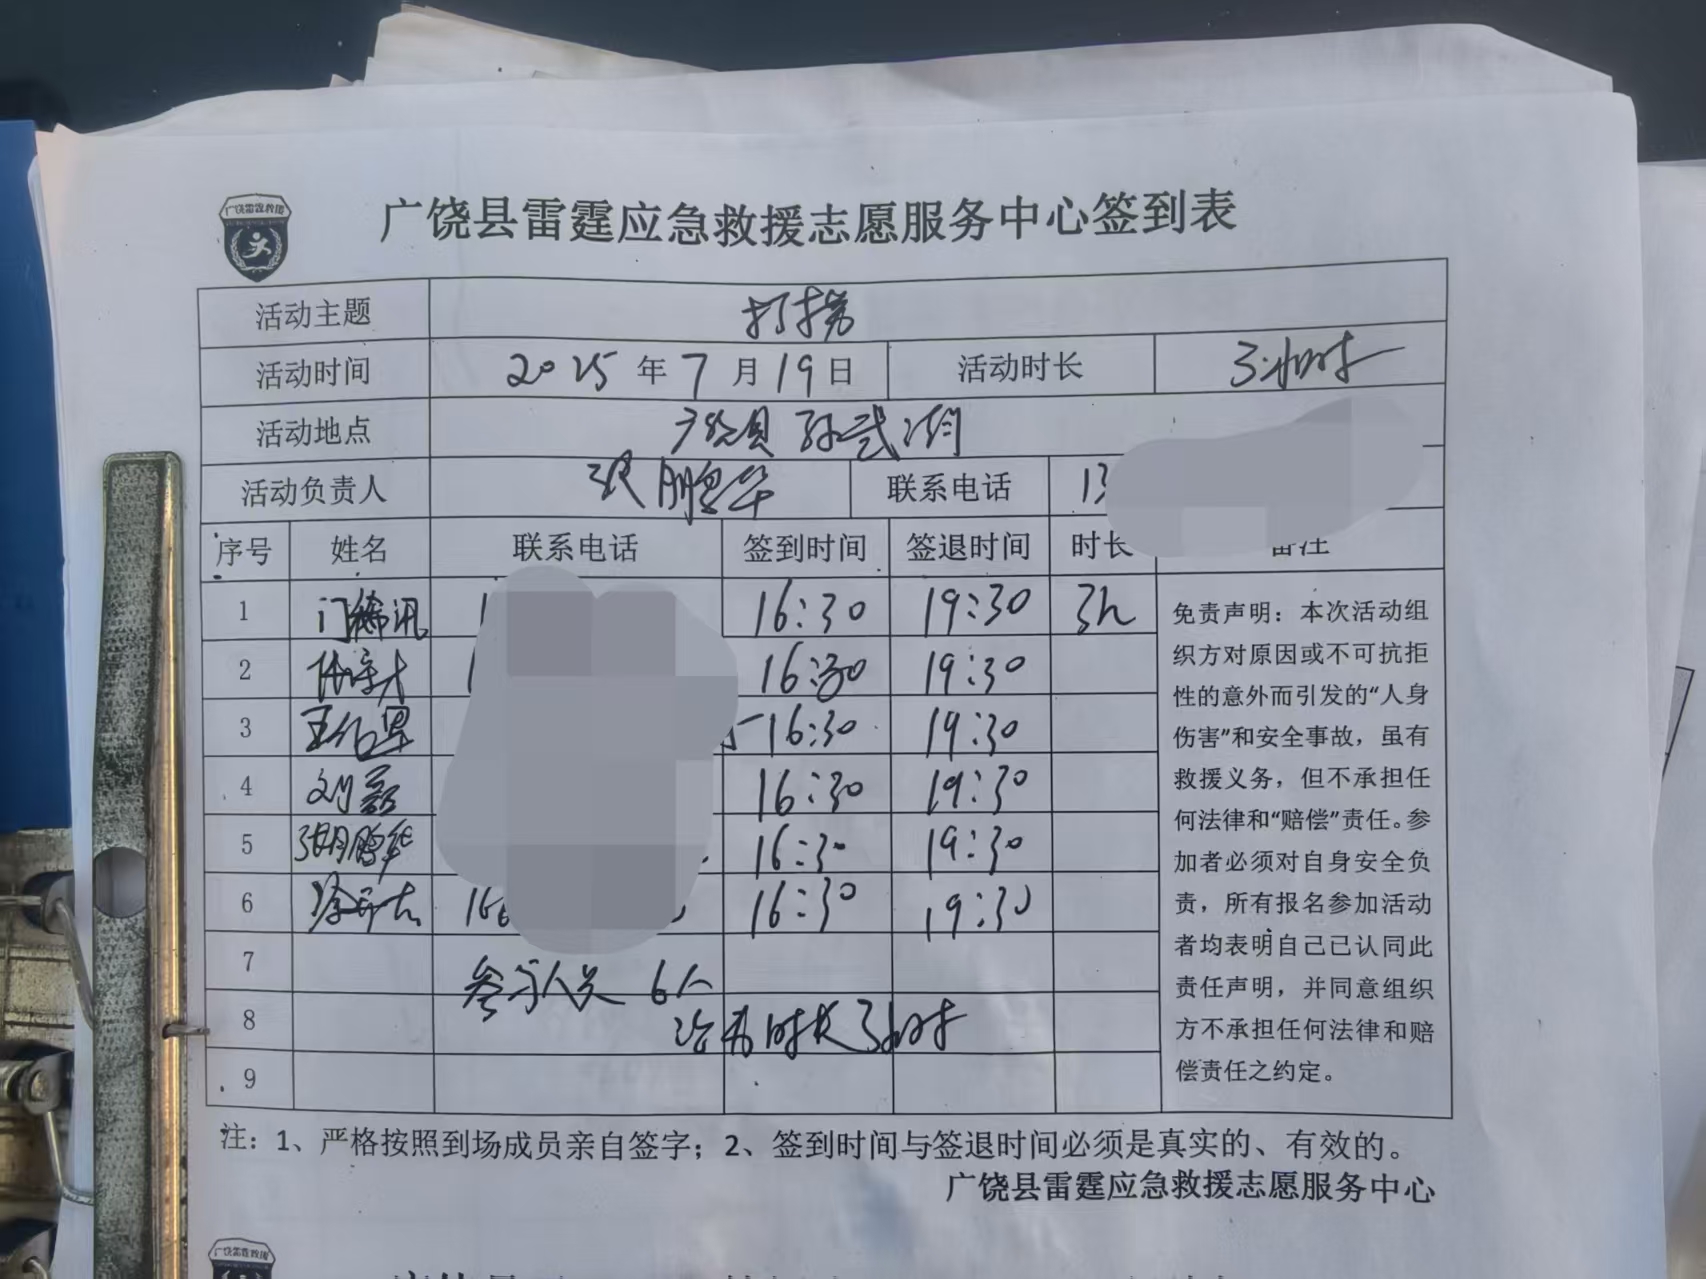 广饶雷霆救援
广饶县雷霆应急救援志愿服务中心签到表
活动主题 打捞
活动时间 2025年7月19日 活动时长 3小时
活动地点 广饶县孙武湖
活动负责人 张鹏华 联系电话 13
序号 姓名 联系电话 签到时间 签退时间 时长 备注
1 门 讯 1 16:30 19:30 3h
2 16:30 19:30
3 王 16:30 19:30
4 刘 16:30 19:30
5 张鹏华 16:30 19:30
6 徐 166 16:30 19:30
7 参与人员 6人
8 活动时长3小时
9
免责声明：本次活动组
织方对原因或不可抗拒
性的意外而引发的“人身
伤害”和安全事故，虽有
救援义务，但不承担任
何法律和“赔偿”责任。参
加者必须对自身安全负
责，所有报名参加活动
者均表明自己已认同此
责任声明，并同意组织
方不承担任何法律和赔
偿责任之约定。
注：1、严格按照到场成员亲自签字；2、签到时间与签退时间必须是真实的、有效的。
广饶县雷霆应急救援志愿服务中心
广饶雷霆救援